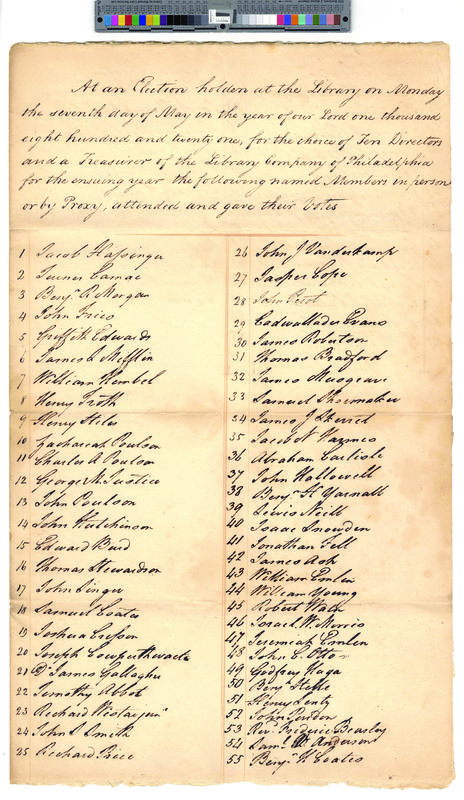 At an Election holden at the Library on Monday
the seventh day of May in the year of our Lord one thousand
eight hundred and twenty one, for the choice of Ten Directors
and a Treasurer of the Library Company of Philadelphia
for the ensuing year the following named Members in person
or by Proxy, attended and gave their Votes
1 Jacob Hassinger
2 Turner Camac
3 Benjn. R Morgan
4 John Fries
5 Griffith Edwards
6 James L Mifflin
7 William Kimbel
8 Henry Troth
9 Henry Stiles
10 Zachariah Poulson
11 Charles A Poulson
12 George M. Justice
13 John Poulson
14 John Hutchinson
15 Edward Burd
16 Thomas Stewardson
17 John Singer
18 Samuel Coates
19 Joshua Cresson
20 Joseph Cowperthwaite
21 Dr James Gallagher
22 Timothy Abbot
23 Richard Wistar junr
24 John Smith
25 Richard Price
26 John J Vanderkemp
27 Jasper Cope
28 John Perot
29 Cadwallader Evans
30 James Robertson
31 Thomas Bradford
32 James Musgrave
33 Samuel Shoemaker
34 James J Skerret
35 Jacob
36 Abraham Carlisle
37 John Hallowell
38 Benjn. H Yarnall
39 Lewis Neill
40 Isaac Snowden
41 Jonathan Fell
42 James Ash
43 William Emlen
44 William Young
45 Robert Waln
46 Israel W. Morris
47 Jeremiah Emlen
48 John C. Otto
49 Godfrey Haga
50 Benj.
51 Henry Lentz
52 John Purdon
53 Revd. Frederic Beasley
54 Saml. Anderson
55 Benjn. H Coates